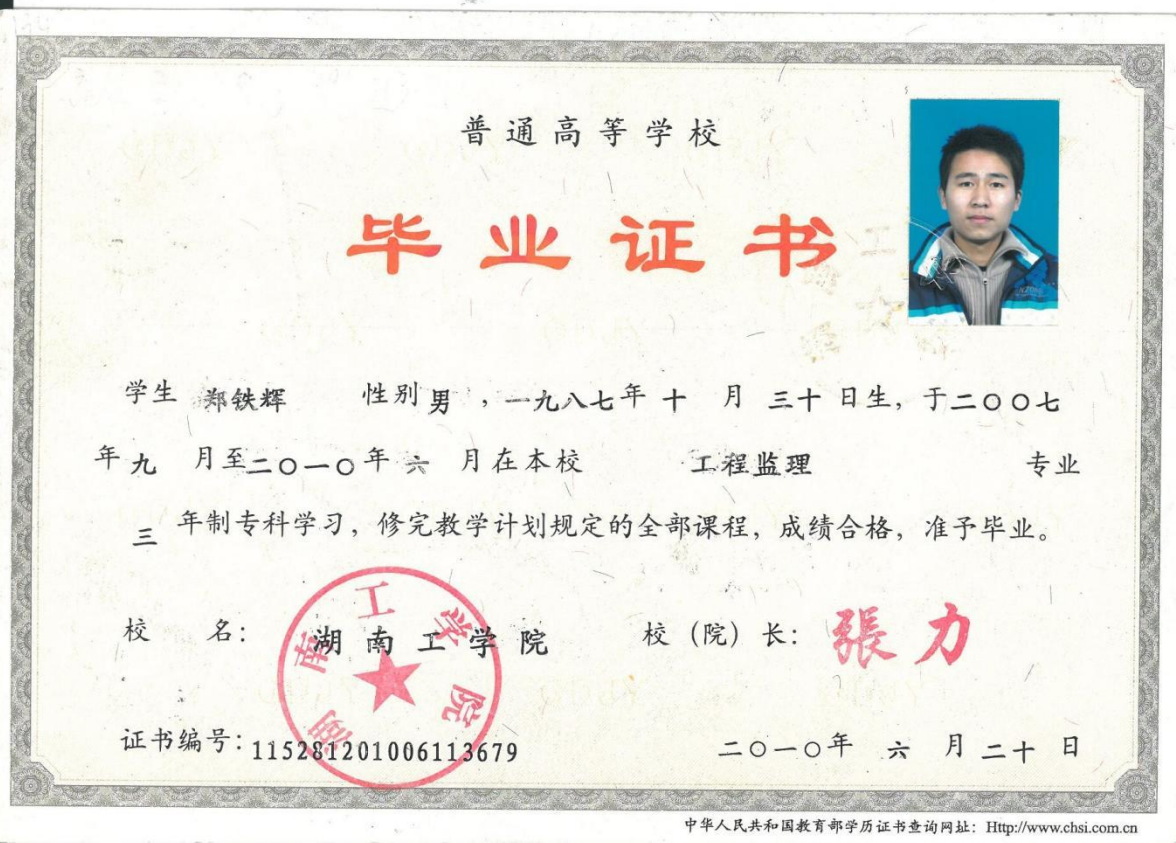 普通高等学校
毕业证书
学生 郑铁辉 性别 男 ，一九八七年 十 月 三十 日生，于二〇〇七
年 九 月至二〇一〇年 六 月在本校 工程监理 专业
三 年制专科学习，修完教学计划规定的全部课程，成绩合格，准予毕业。
校 名： 湖南工学院 校（院）长： 張力
湖南工学院
证书编号：115281201006113679 二〇一〇年 六 月 二十 日
中华人民共和国教育部学历证书查询网址：Http://www.chsi.com.cn